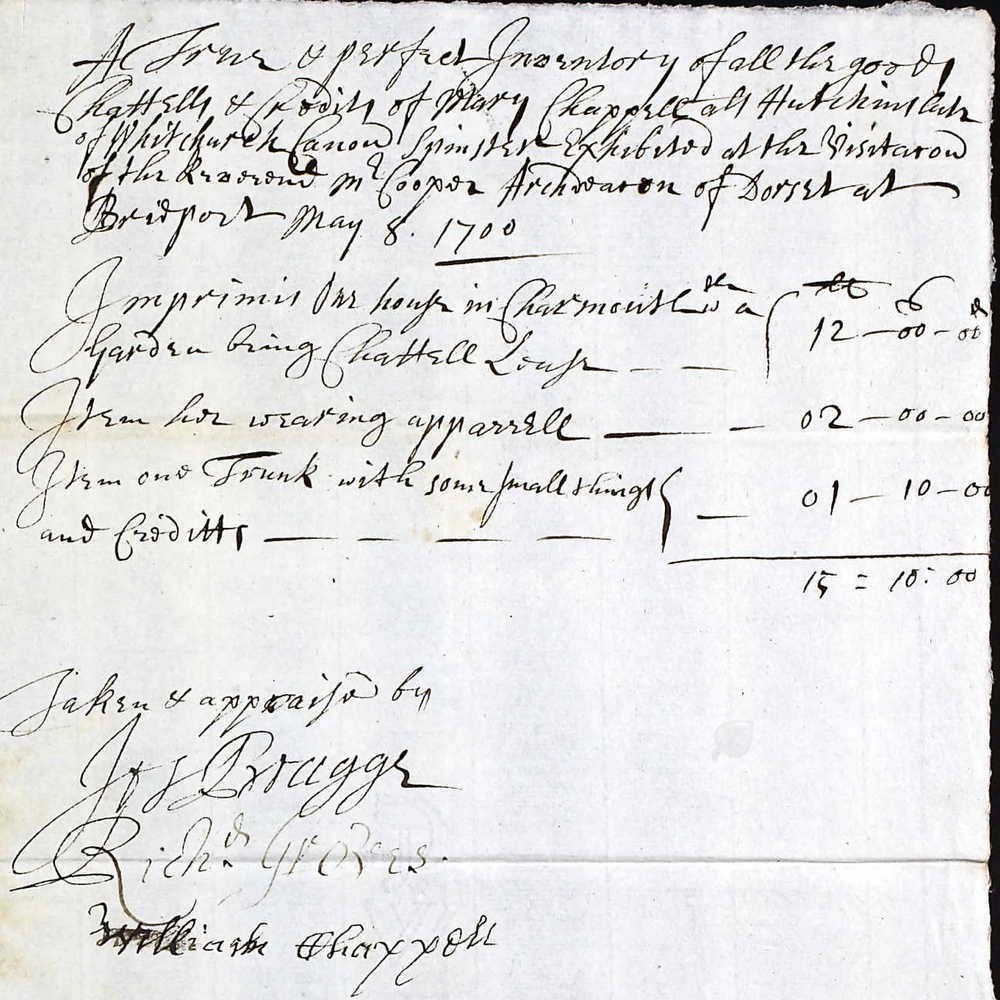 A True & perfect Inventory of all the goods
Chattells & Credits of Mary Chappell als Hutchins late
of Whitchurch Canon Spinster Exhibited at the Visitacon
of the Reverend Mr Cooper Archdeacon of Dorset at
Bridport May 8. 1700
Imprimis One house in Charmouth wth a
Garden being Chattell Lease — — 12 — 00 — 00
Item her wearing apparrell — — 02 — 00 — 00
Item one Trunk with some small things
and Creditts — — — — 01 — 10 — 00
15 = 10: 00
Taken & appraisd by
Jos Bragge
Richd Groves.
William Chappell